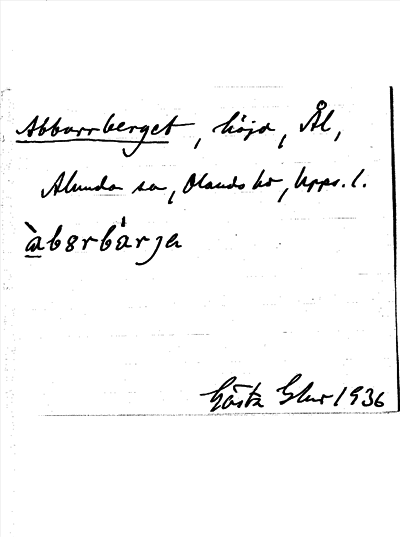 Abborrberget, höjd, Ål,
Alunda sn, Olands hd, Upps. l.
àbərbárja
Gösta 1936